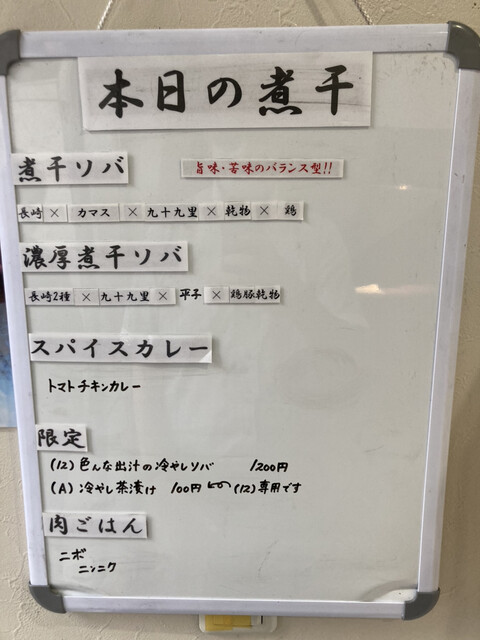 本日の煮干
煮干ソバ 旨味・苦味のバランス型!!
長崎 × カマス × 九十九里 × 乾物 × 鶏
濃厚煮干ソバ
長崎2種 × 九十九里 × 平子 × 鶏豚乾物
スパイスカレー
トマトチキンカレー
限定
(12) 色んな出汁の冷やしソバ 1200円
(A) 冷やし茶漬け 100円 ← (12)専用です
肉ごはん
ニボ
ニンニク